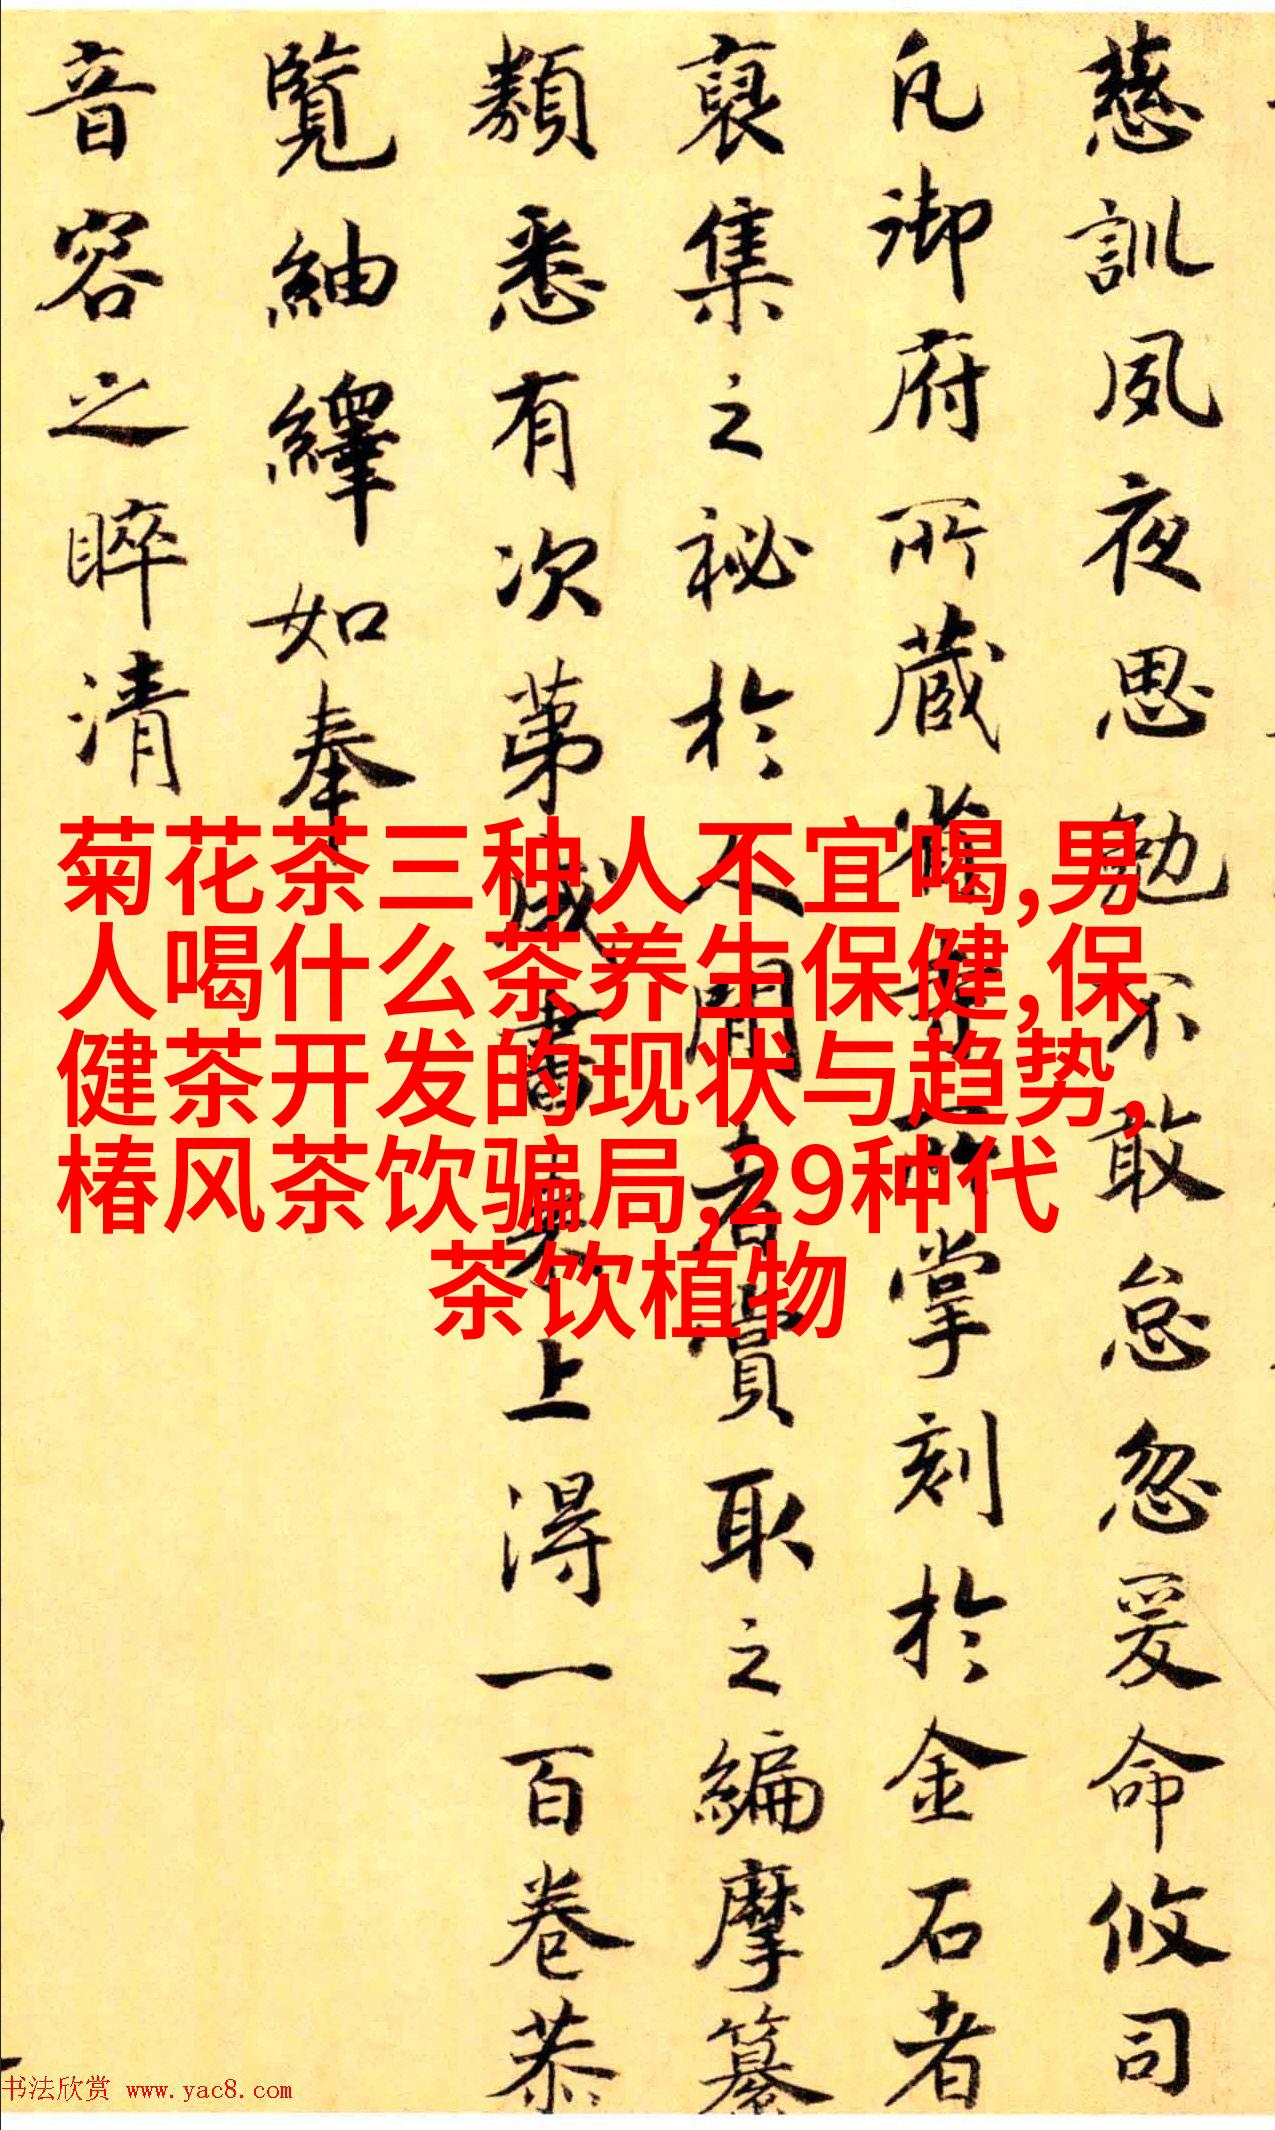 慈訓夙夜思勉不敢怠忽爰命攸司
凡御府所藏者前所掌刻於金石者
裒集之祕於人間者賞取之編摩纂
類悉有次第成書來上淂一百卷恭
覽紬繹如奉
音容之睟清
菊花茶三种人不宜喝,男
人喝什么茶养生保健,保
健茶开发的现状与趋势,
椿风茶饮骗局,29种代
茶饮植物
书法欣赏 www.yac8.com